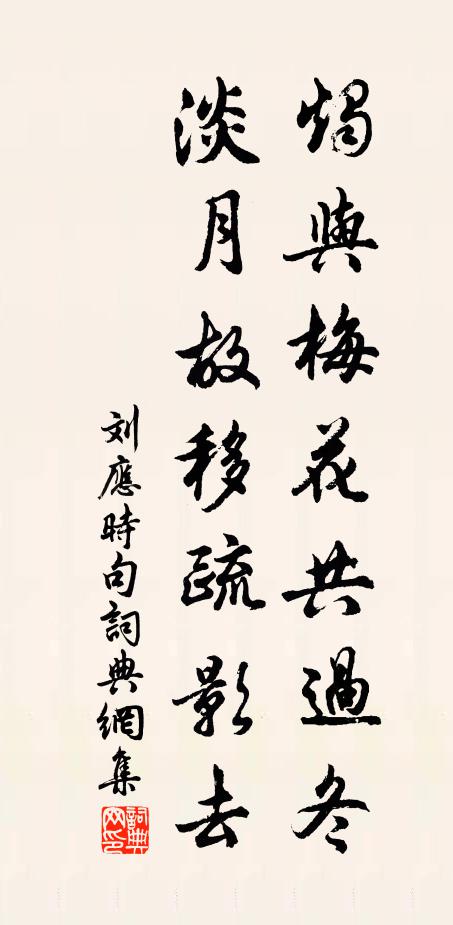 獨與梅花共過冬
淡月故移疏影去
刘應時句詞典網集
詞典
网印